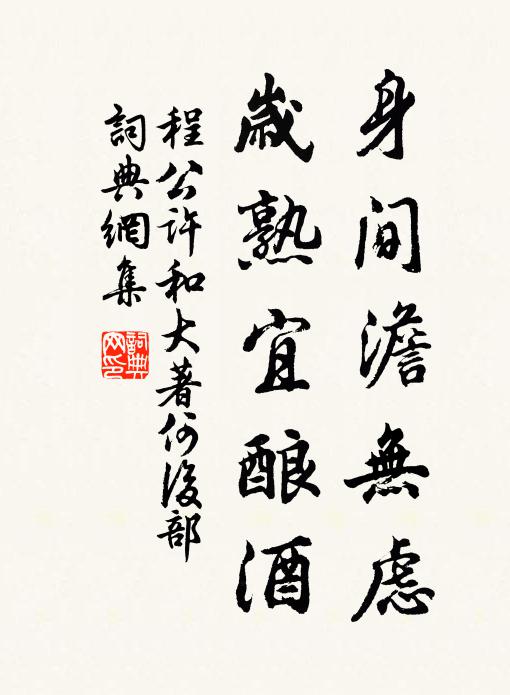 身间澹無虑
歲熟宜酿酒
程公许和大著何後部
詞典網集
詞典网印